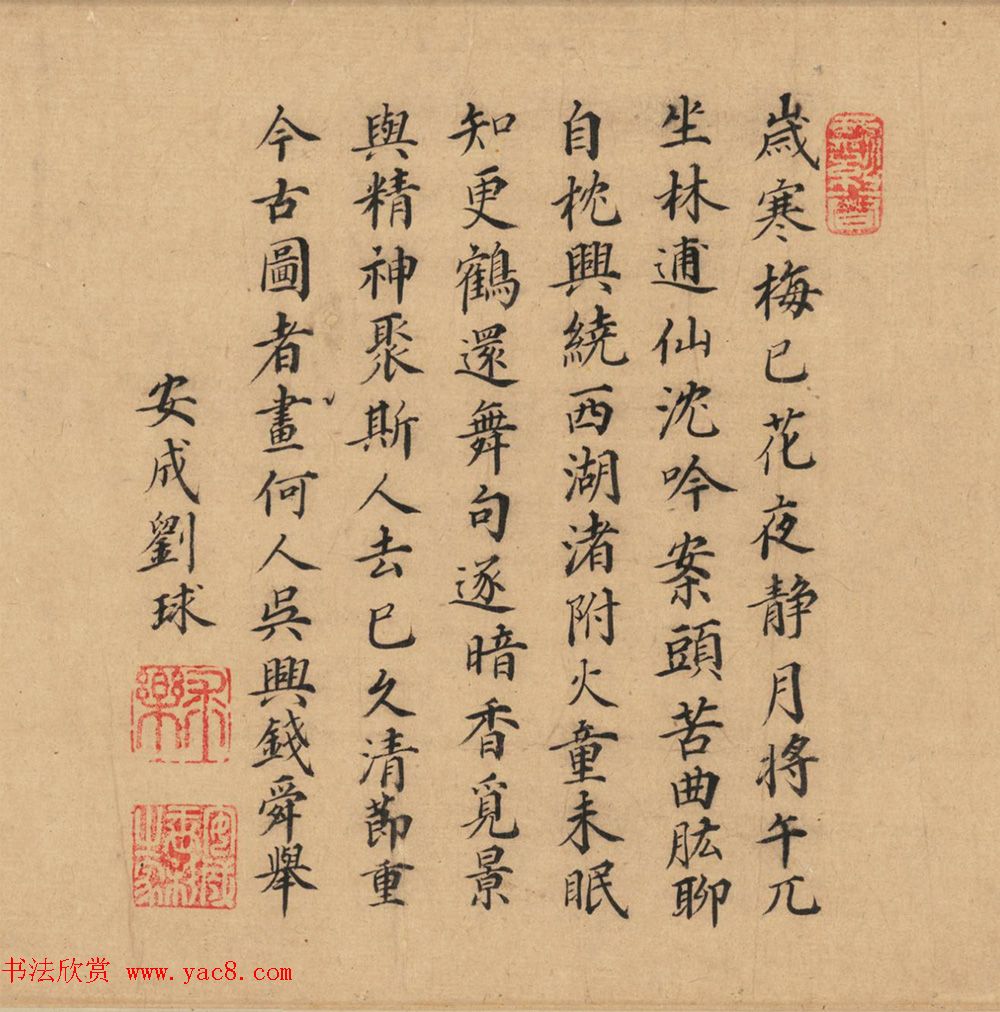 歲寒梅已花夜靜月將午兀
坐林逋仙沈吟案頭苦曲肱聊
自枕興繞西湖渚附火童未眠
知更鶴還舞句逐暗香覓景
與精神聚斯人去已久清節重
今古圖者畫何人吳興錢舜舉
安成劉球
書法欣赏 www.yac8.com